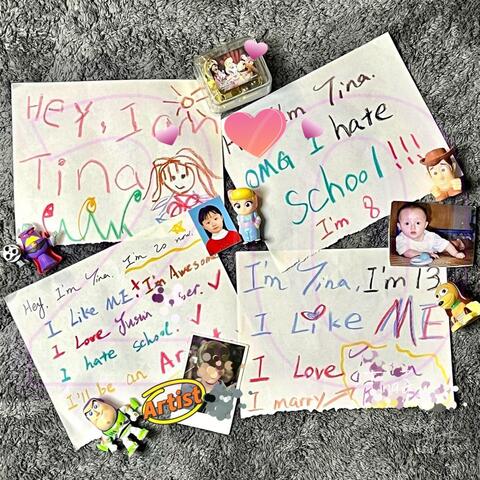 Hey, I am
Tina
I'm Tina.
OMG I hate
school!!!
I'm 8
Hey. I'm Tina. I'm 20 now.
I Like ME! I'm Awesome
I Love
I hate school.
I'll be an
Artist
I'm Tina, I'm 13
I Like ME
I Love
I marry